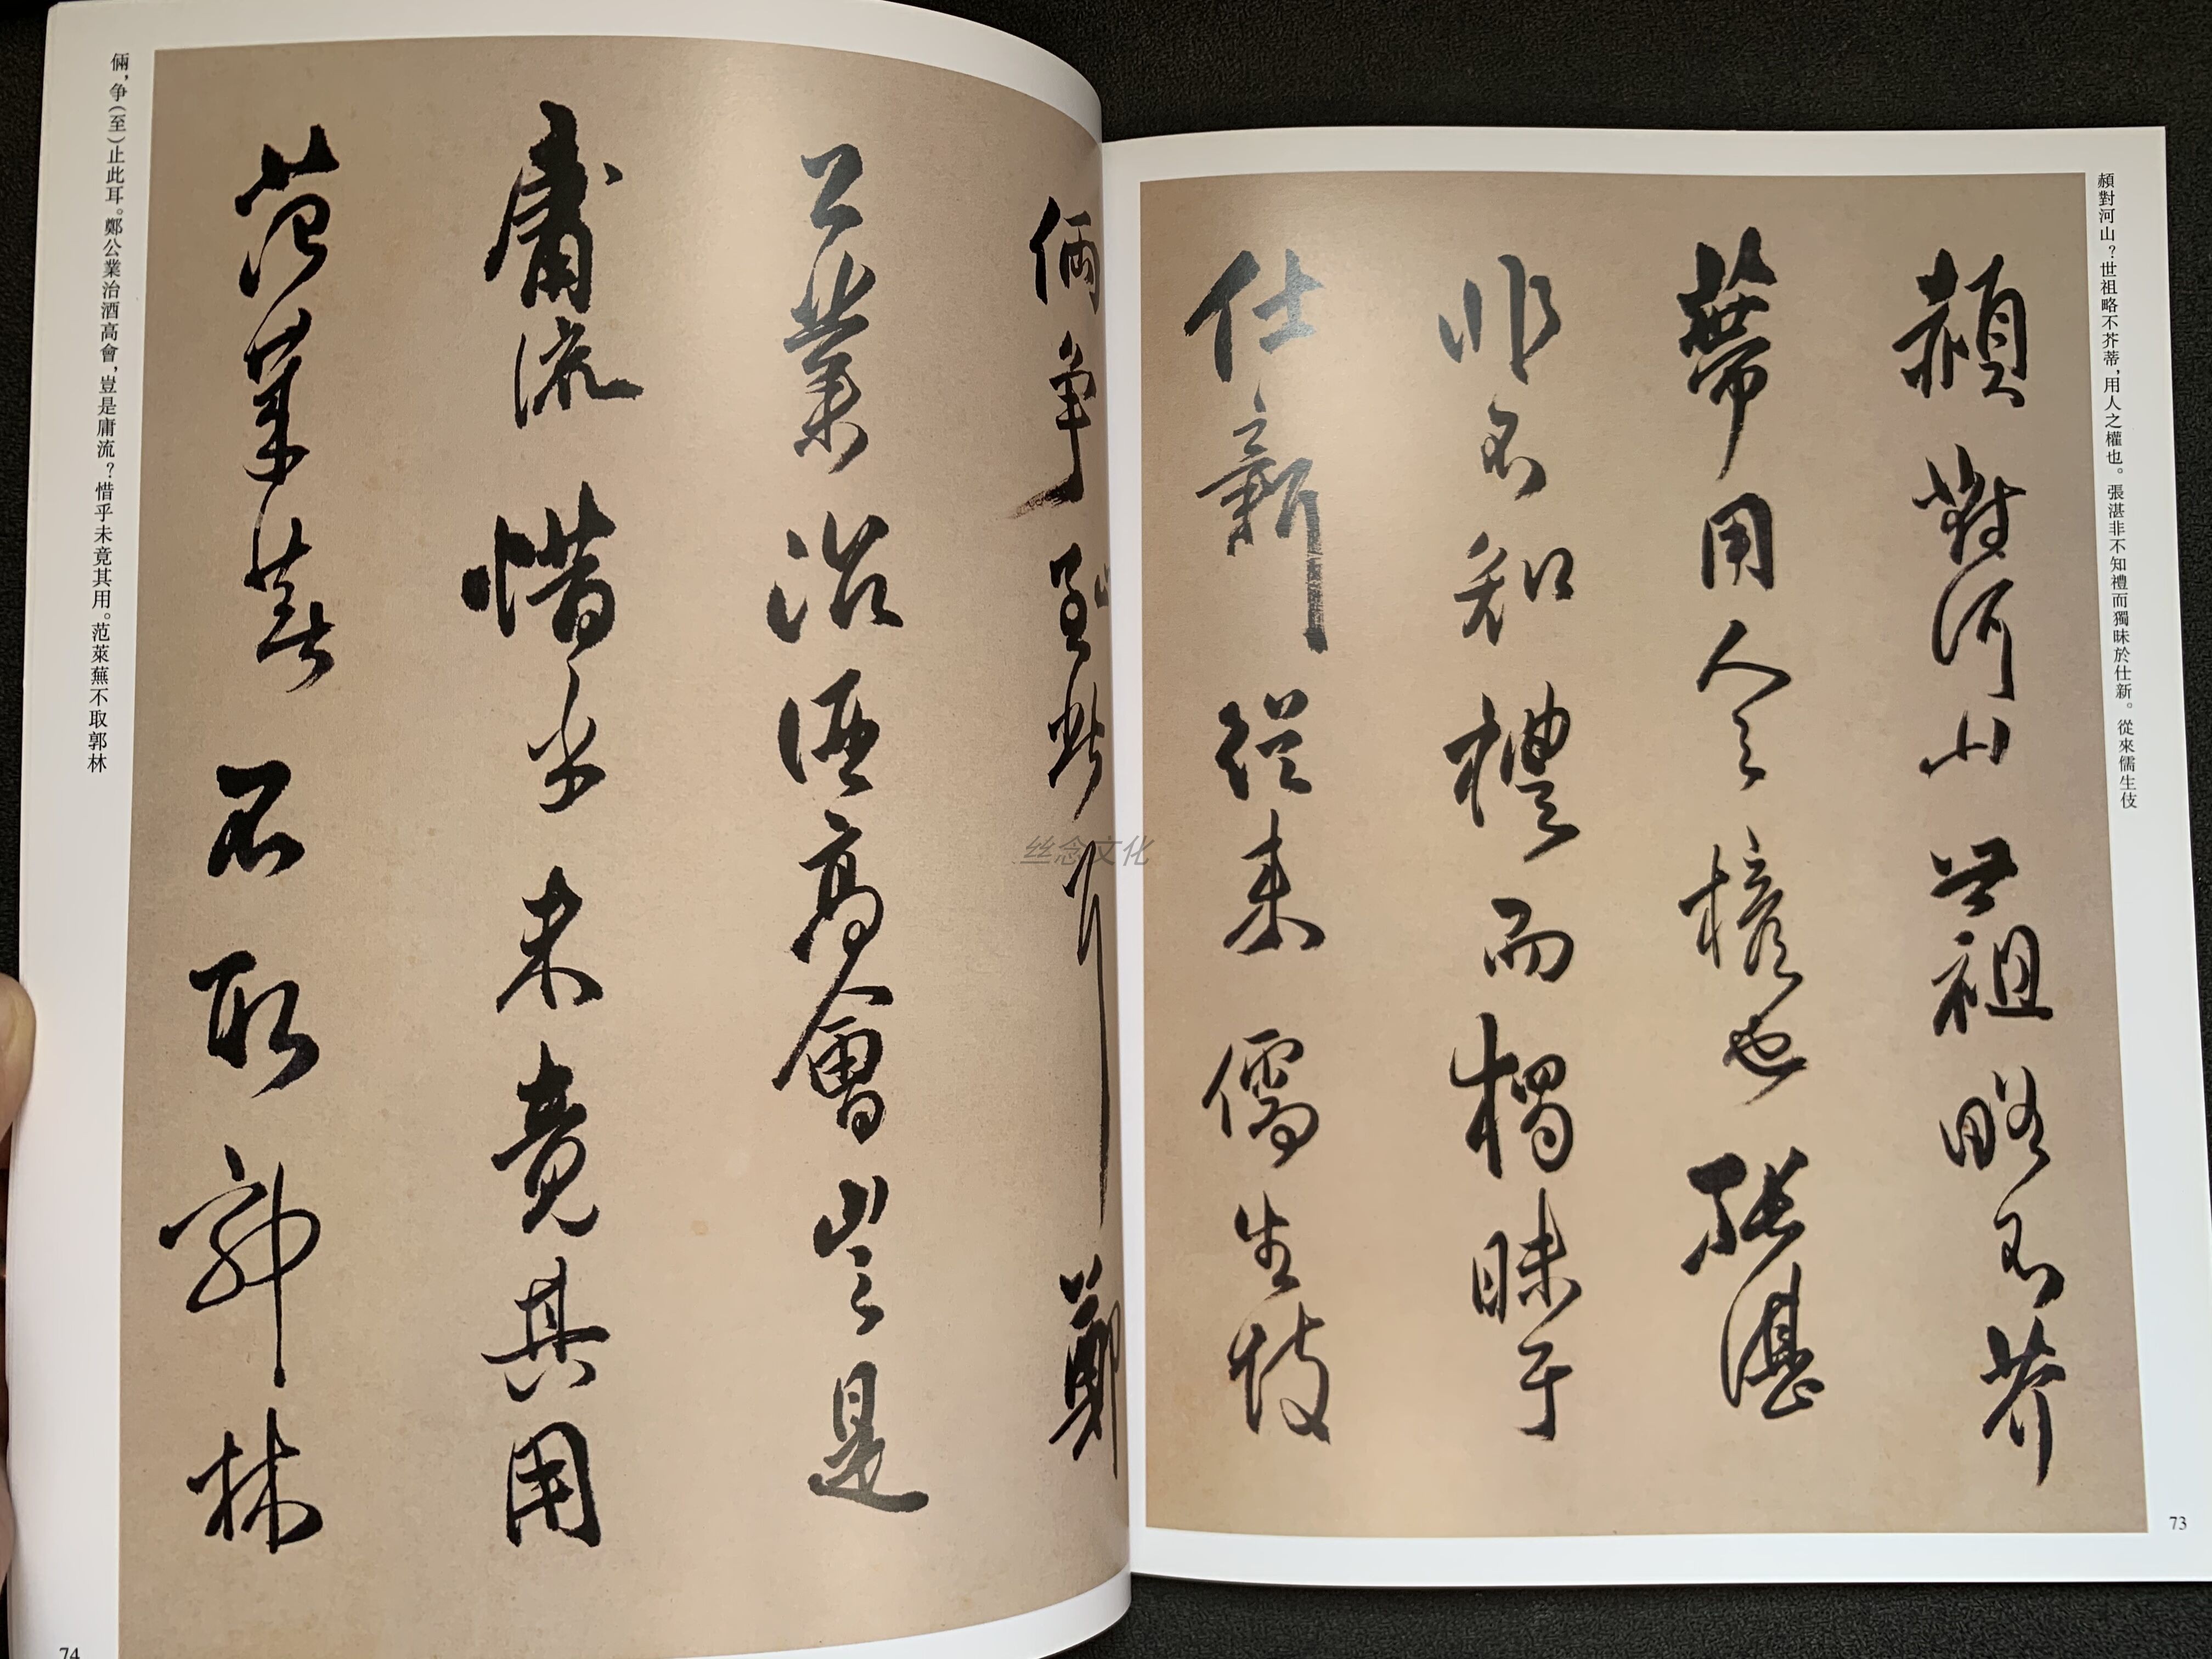 頳對河山？世祖略不芥蒂，用人之權也。張湛非不知禮而獨昧於仕新。從來儒生伎
頳對河山世祖略不芥
蔕用人之權也張湛
非不知禮而獨昧于
仕新從来儒生伎
73
倆争至止此耳鄭
公業治酒高會豈是
庸流惜乎未竟其用
范萊蕪不取郭林
倆，争（至）止此耳。鄭公業治酒高會，豈是庸流？惜乎未竟其用。范萊蕪不取郭林
74
丝念文化